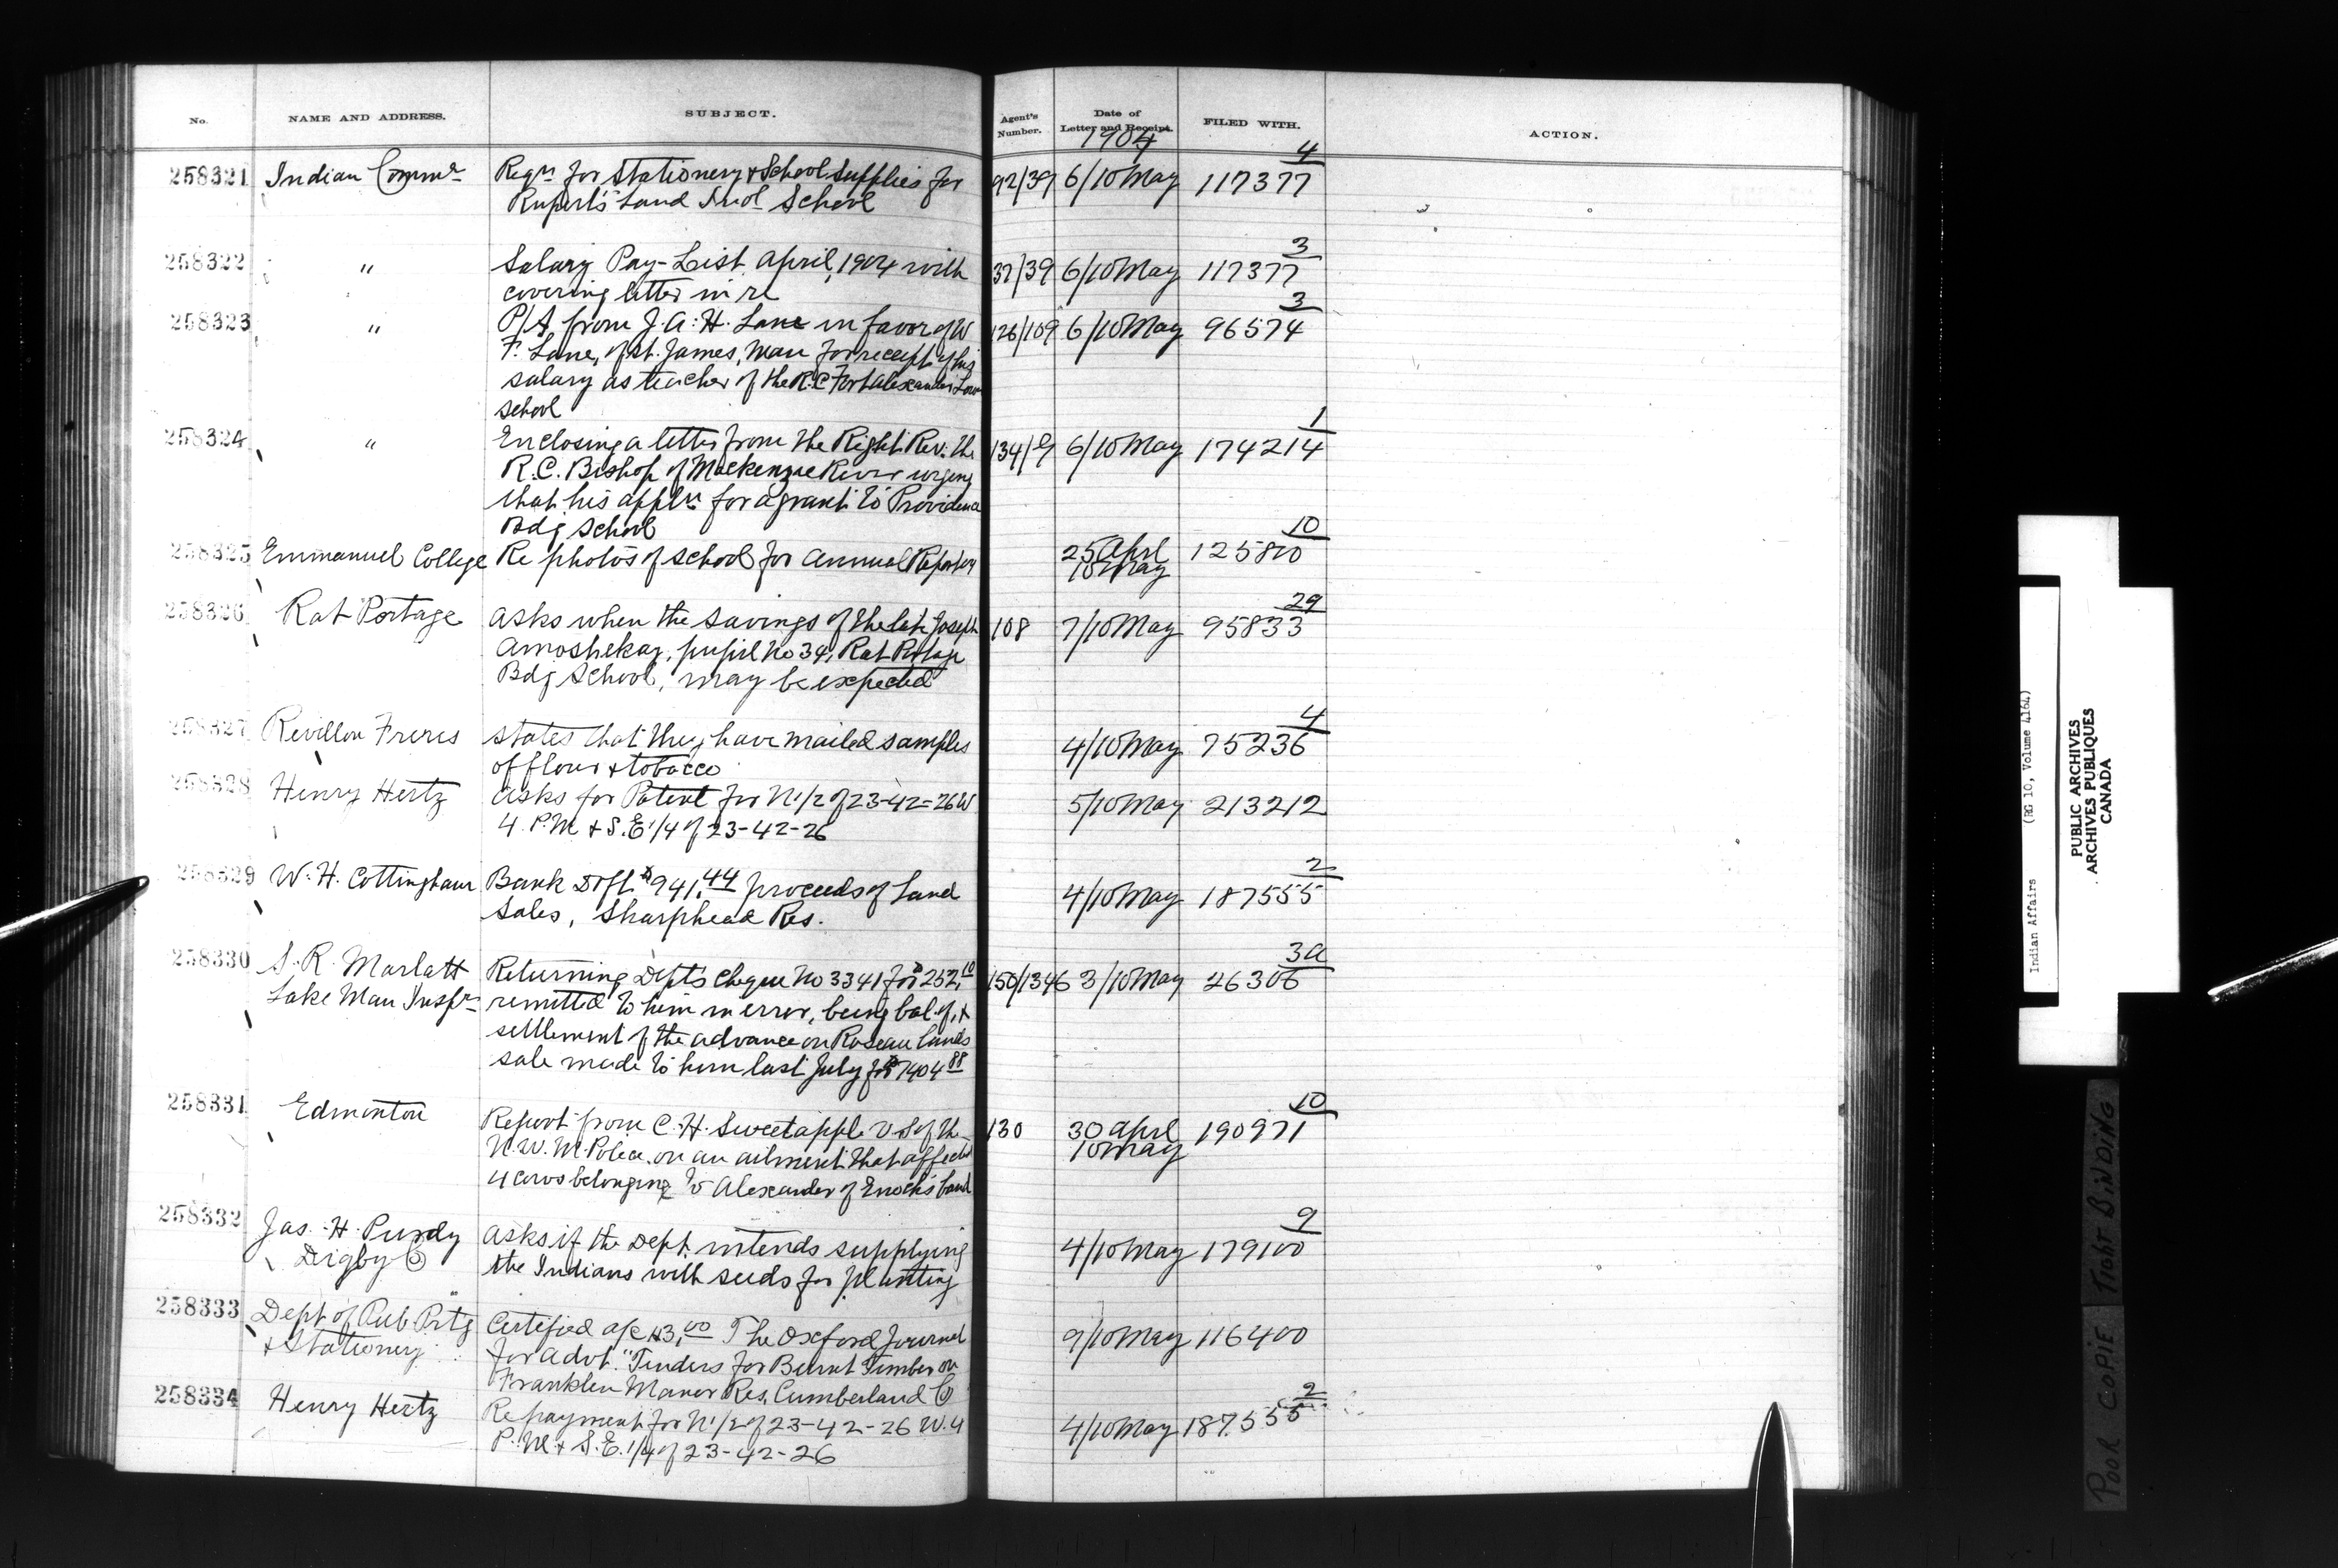 No. NAME AND ADDRESS. SUBJECT. Agent's Number. Date of Letter and Receipt. FILED WITH. ACTION.
1904
4
258321 Indian Commr Reqn for Stationery & School Supplies for 92/39 6/10 May 117377
Rupert's Land Indl School
3
258322 " Salary Pay-List April, 1904 with 37/39 6/10 May 117377
covering letter in re
3
258323 " P/A from J. A. H. Lane in favor of W 126/109 6/10 May 96574
F. Lane, of St. James, Man for receipt of his
salary as teacher of the R.C Fort Alexander Lower
School
1
258324 " Enclosing a letter from the Right Rev. the 134/9 6/10 May 174214
R.C. Bishop of Mackenzie River urging
that his appln for a grant to Providence
Bdg School
10
258325 Emmanuel College Re photos of school for Annual Report 25 Aprl 125810
10 May
29
258326 Rat Portage Asks when the savings of the late Joseph 108 7/10 May 95833
Amoshekay, pupil No 34, Rat Portage
Bdg School, may be expected
4
258327 Revillon Freres States that they have mailed samples 4/10 May 75236
of flour & tobacco
258328 Henry Hertz Asks for Patent for N 1/2 of 23-42-26 W 5/10 May 213212
4. P.M & S.E 1/4 of 23-42-26
2
258329 W. H. Cottingham Bank Dft $941.44 proceeds of Land 4/10 May 187555
Sales, Sharphead Res.
3a
258330 S. R. Marlatt Returning Dept's cheque No 3341 for $252.10 150/1346 3/10 May 26306
Lake Man Inspr remitted to him in error, being bal of, &
settlement of the advance on Roseau lands
sale made to him last July for $1404.88
10
258331 Edmonton Report from C. H. Sweetapple V S of the 130 30 Aprl 190971
N.W.M. Police, on an ailment that affected 10 May
4 cows belonging to Alexander of Enoch's band
9
258332 Jas. H. Purdy Asks if the Dept. intends supplying 4/10 May 179100
Digby Co the Indians with seeds for planting
258333 Dept of Pub Prtg Certified a/c $3.00 The Oxford Journal 9/10 May 116400
& Stationery for advt. "Tenders for Burnt Timber on
Franklin Manor Res, Cumberland Co
2
258334 Henry Hertz Re payment for N 1/2 of 23-42-26 W. 4 4/10 May 187555
P. M & S.E. 1/4 of 23-42-26
Indian Affairs (RG 10, Volume 4164)
PUBLIC ARCHIVES
ARCHIVES PUBLIQUES
CANADA
POOR COPIE TIGHT BINDING